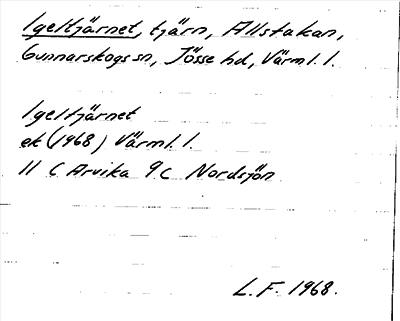 Igeltjärnet, tjärn, Allstakan,
Gunnarskogs sn, Jösse hd, Värml. l.
Igeltjärnet
ek (1968) Värml. l.
11 C Arvika 9 c Nordsjön
L. F. 1968.